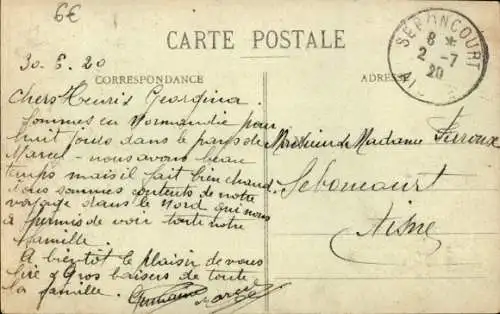 6€
CARTE POSTALE
30.6.20
CORRESPONDANCE
ADRESSE
SEBONCOURT
8 *
2 -7
20
Chers Henris Georgina
Sommes en Normandie pour
huit jours dans le pays de
Marcel - nous avons beau
temps mais il fait bien chaud.
Nous sommes contents de notre
voyage dans le Nord qui nous
a permis de voir toute notre
famille.
A bientôt le plaisir de vous
lire & Gros baisers de toute
la famille.
Germaine Marcel
Monsieur & Madame
Seboncourt
Aisne